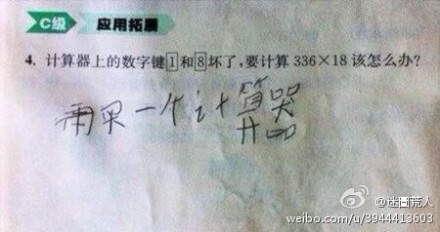 C级 应用拓展
4. 计算器上的数字键1和8坏了,要计算336×18该怎么办?
再买一个计算器
@迷圈荒人
weibo.com/u/3944413603